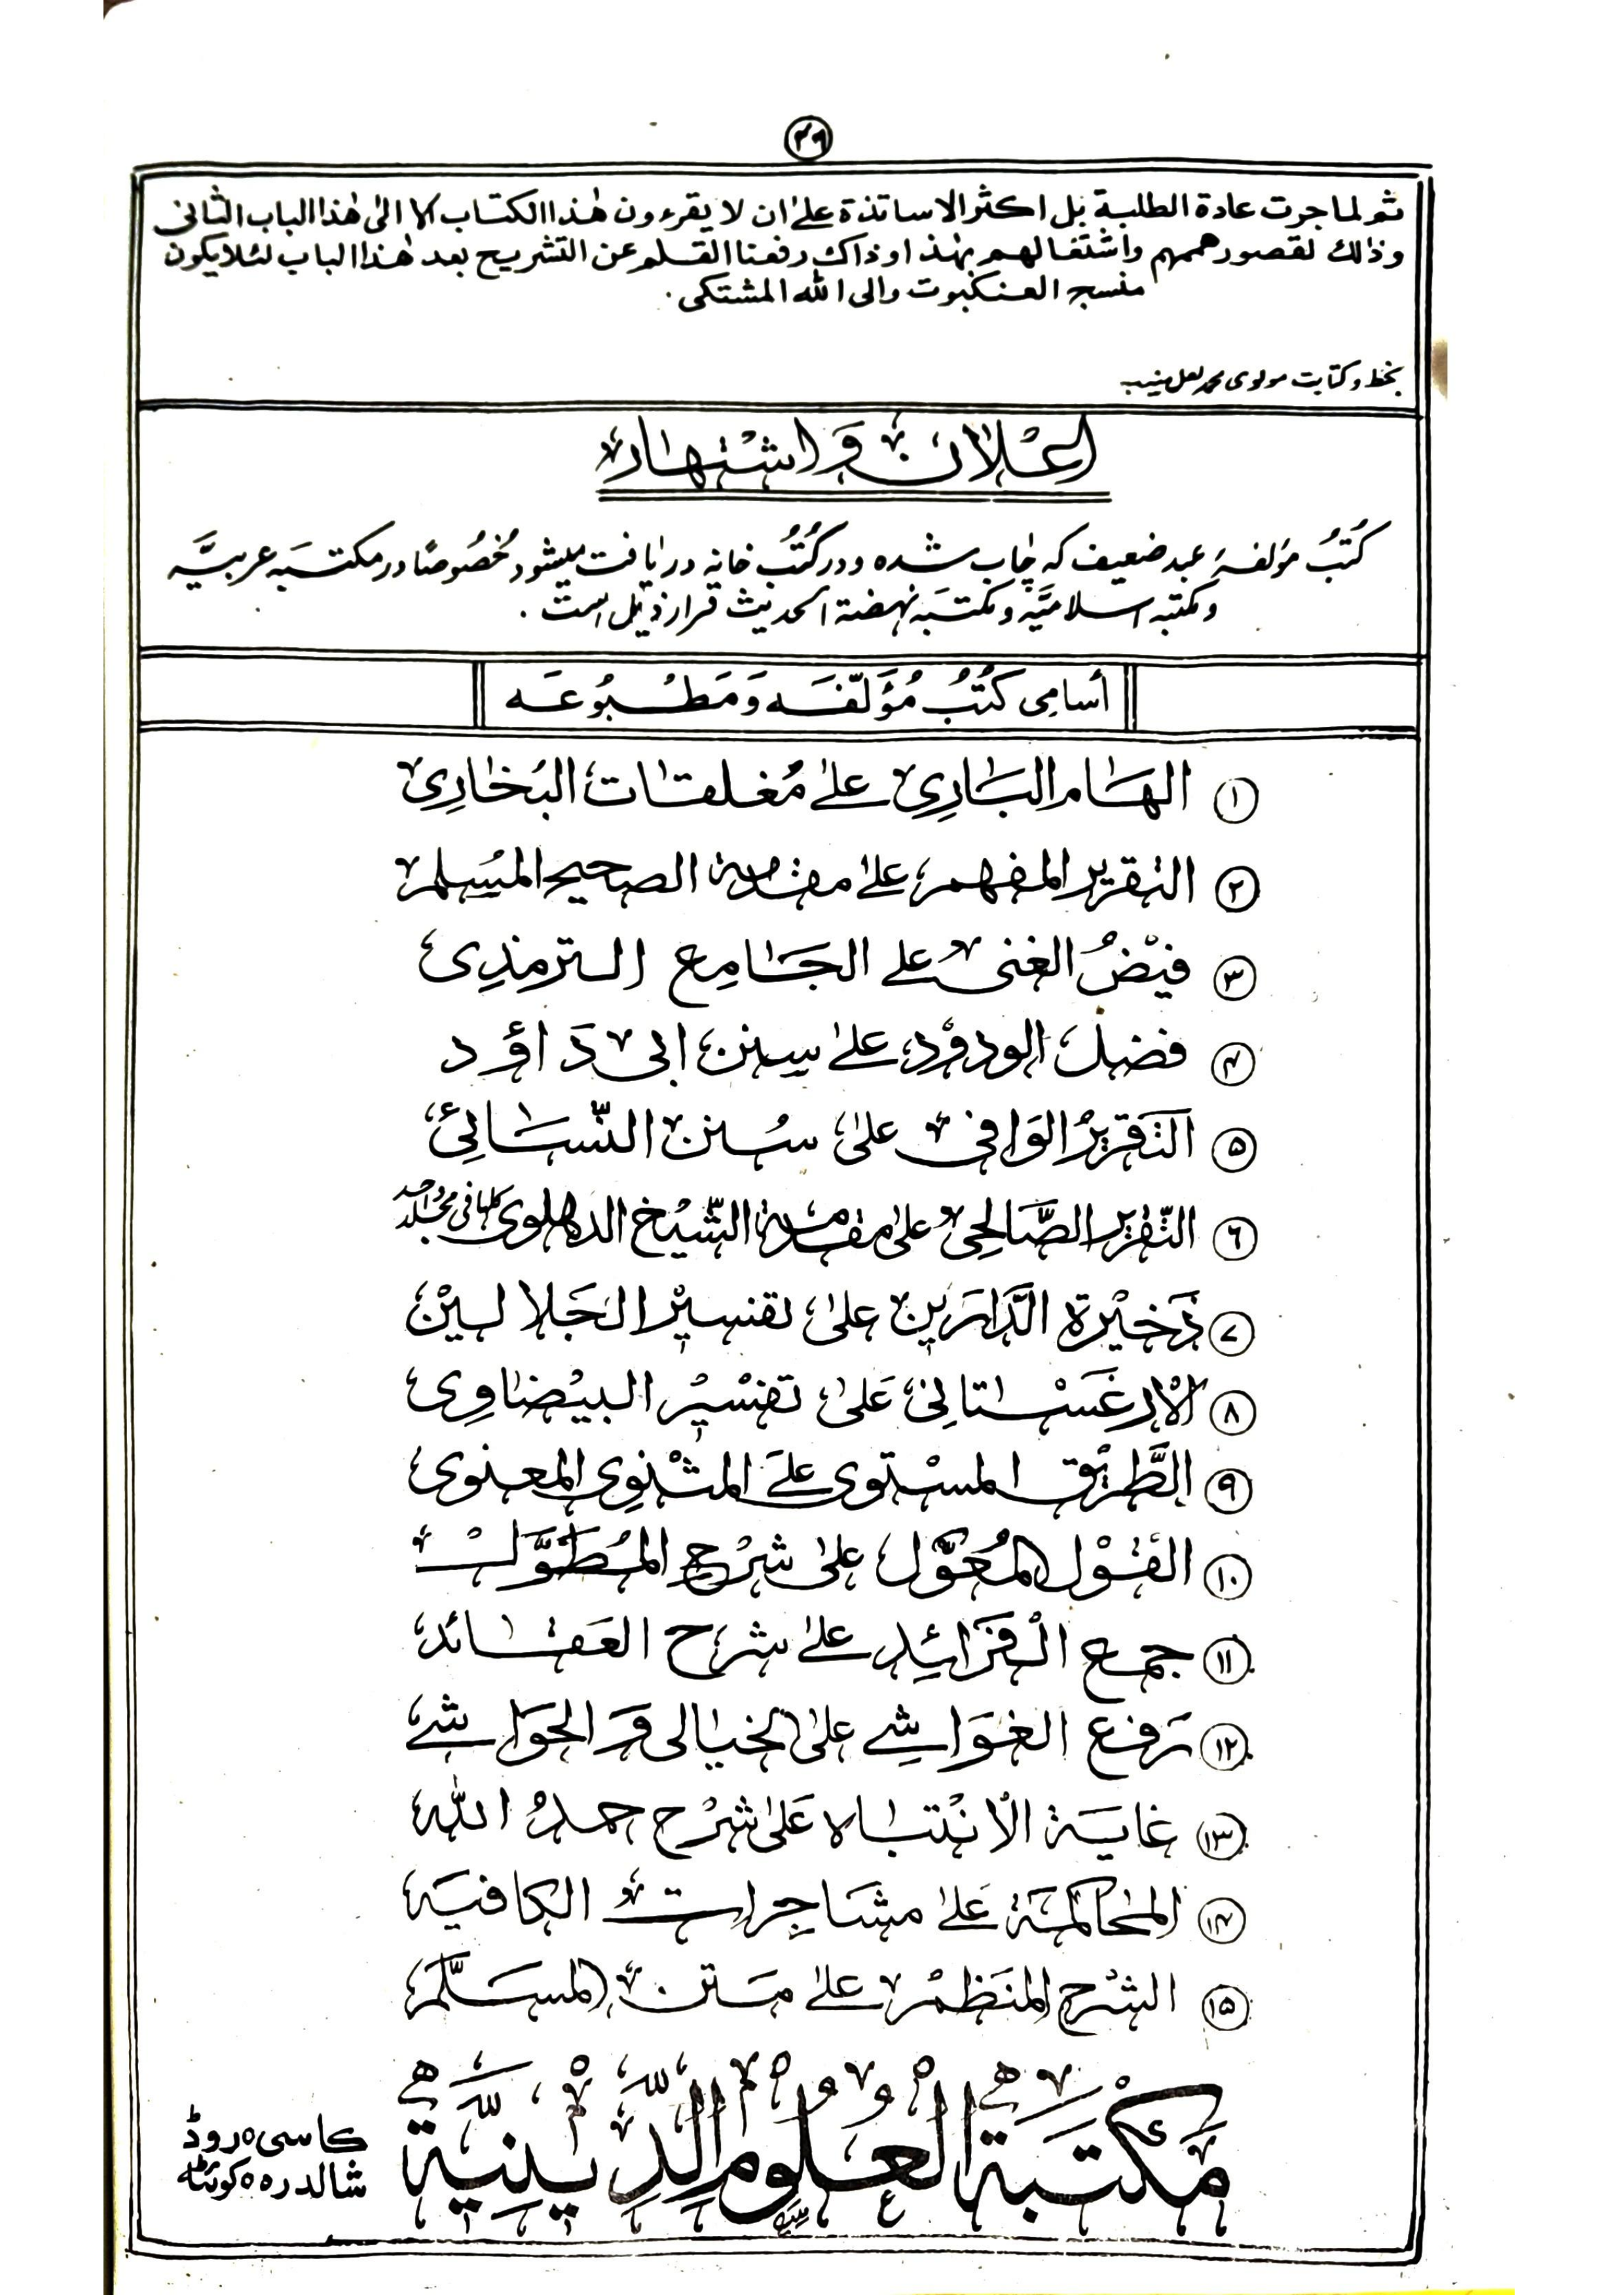 ۳۶
ثم لما جرت عادة الطلبة بل اکثر الاساتذة علی ان لا یقرءون هٰذا الکتاب الا الی هٰذا الباب الثانی
وذالك لقصور هممهم واشتغالهم بهٰذا وذاك رفعنا القلم عن التشریح بعد هٰذا الباب لئلا یکون
منسج العنکبوت والی الله المشتکی.
بخط و کتابت مولوی محمد لعل منیب
اعلان و اشتهار
کُتبُ مؤلفۀ عبد ضعیف که چاپ شده و در کُتُب خانه دریافت میشود خُصُوصًا در مکتبَه عربیَّه
و مکتبه اسلامیَّه و مکتبَه نهضة الحدیث قرار ذیل است.
أسامِی کُتُبُ مُؤَلّفَه وَ مَطبُوعَه
۱ الهَام البَارِی علیٰ مُغلقات البُخَارِی
۲ التقریر المفهم علیٰ مقدمة الصحیح المُسلم
۳ فَیْضُ الغنی علی الجَامِع الترمذِی
۴ فضل الودوُد علیٰ سنن ابی دَاؤد
۵ التَقریرُ الوَافی علیٰ سُنن النّسَائِی
۶ التّقریر الصَّالحِی علیٰ مقدمة الشّیُخ الدهلوی کلها فی مجلد واحد
۷ ذَخیْرة الدَّارَین علیٰ تفسیْر الجَلالیْن
۸ الْارغَسْتانِی عَلیٰ تفسْیر البیْضاوِی
۹ الطَّرِیْق المسْتوی علَی المثْنوِی المعنوی
۱۰ القَوْل المُعَوَّل علیٰ شرْح المُطَوَّل
۱۱ جمع الْفرَائِد علیٰ شرح العَقَائد
۱۲ رَفع الغوَاشِی علیٰ الخیالی وَ الحَوَاشی
۱۳ غایَة الْانْتبَاه عَلیٰ شرْح حمدُ الله
۱۴ المحَاکمَة عَلیٰ مشَاجِرات الکافیَه
۱۵ الشرْح المنَظمْ علیٰ مَتن المسَلَّم
مَکْتَبَة الْعُلُوْم الدِّیْنِیَّة
کاسی روڈ
شالدره کوئٹه